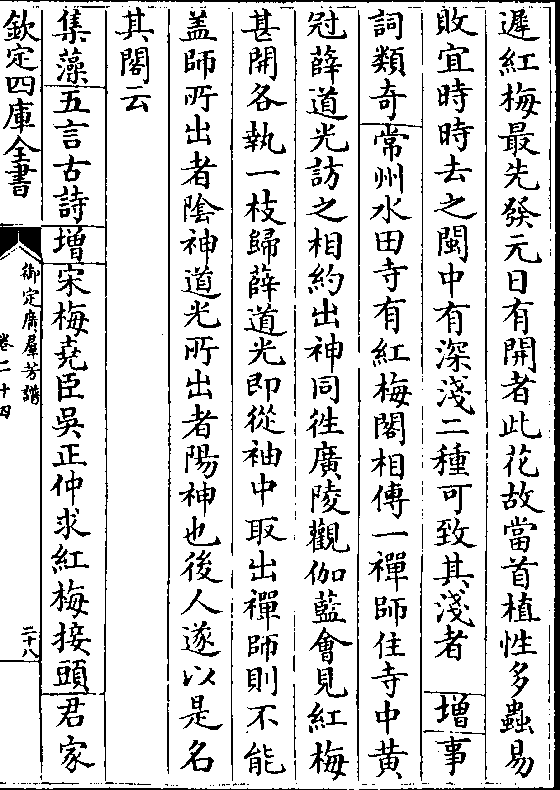 遲紅梅最先發元日有開者此花故當首植性多蟲易
敗宜時時去之閩中有深淺二種可致其淺者　增事
詞類奇常州水田寺有紅梅閣相傳一禪師住寺中黄
冠薛道光訪之相約出神同徃廣陵觀伽藍會見紅梅
甚開各執一枝歸薛道光即從袖中取出禪師則不能
盖師所出者陰神道光所出者陽神也後人遂以是名
其閣云
集藻五言古詩增宋梅堯臣吳正仲求紅梅接頭君家
欽定四庫全書
御定廣羣芳譜
卷二十四
二十八